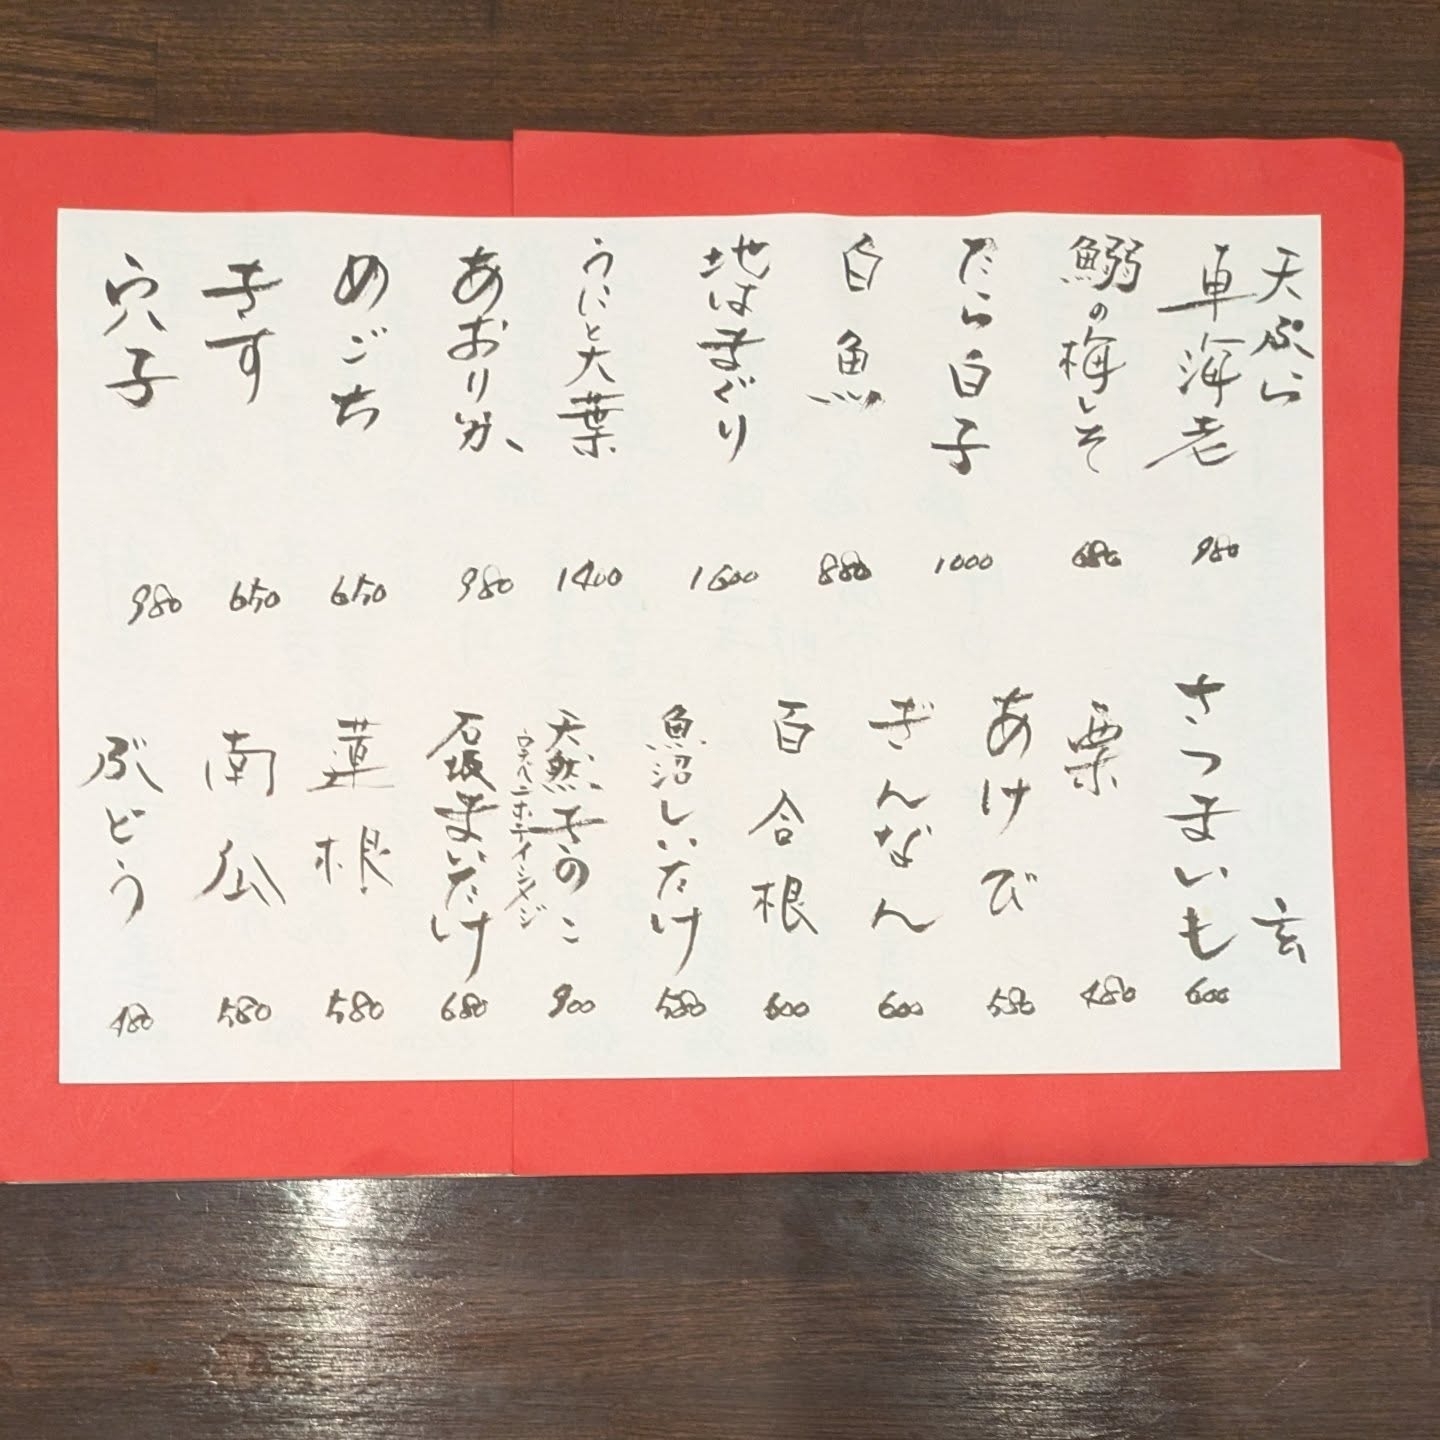 天ぷら 玄
車海老 980
鰯の梅しそ 680
たら白子 1000
白魚 880
地はまぐり 1600
うにと大葉 1400
あおりいか 980
めごち 650
きす 650
穴子 980
さつまいも 600
栗 480
あけび 580
ぎんなん 600
百合根 600
魚沼しいたけ 580
天然きのこ 900
ウラベニホテイシメジ
石坂まいたけ 680
蓮根 580
南瓜 580
ぶどう 480